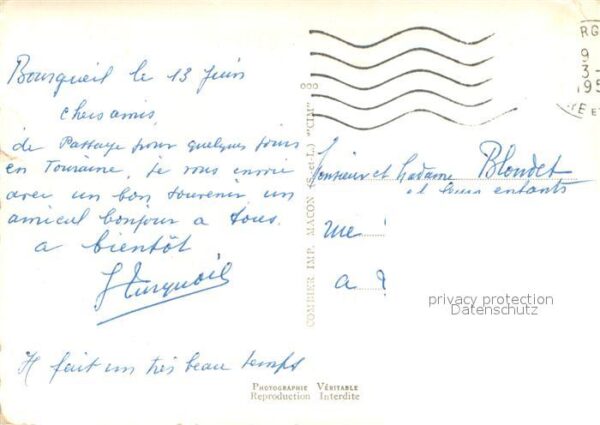 Bourgueil le 13 Juin
chers amis,
de Passage pour quelques jours
en Touraine, Je vous envoie
avec un bon souvenir un
amical bonjour a tous.
a bientôt
Il fait un très beau temps
COMBIER IMP. MACON (S.-et-L.) "CIM"
RG
9
3-
195
E ET
Monsieur et Madame Blondet
et leurs enfants
rue !
a ?
privacy protection
Datenschutz
PHOTOGRAPHIE VÉRITABLE
Reproduction Interdite